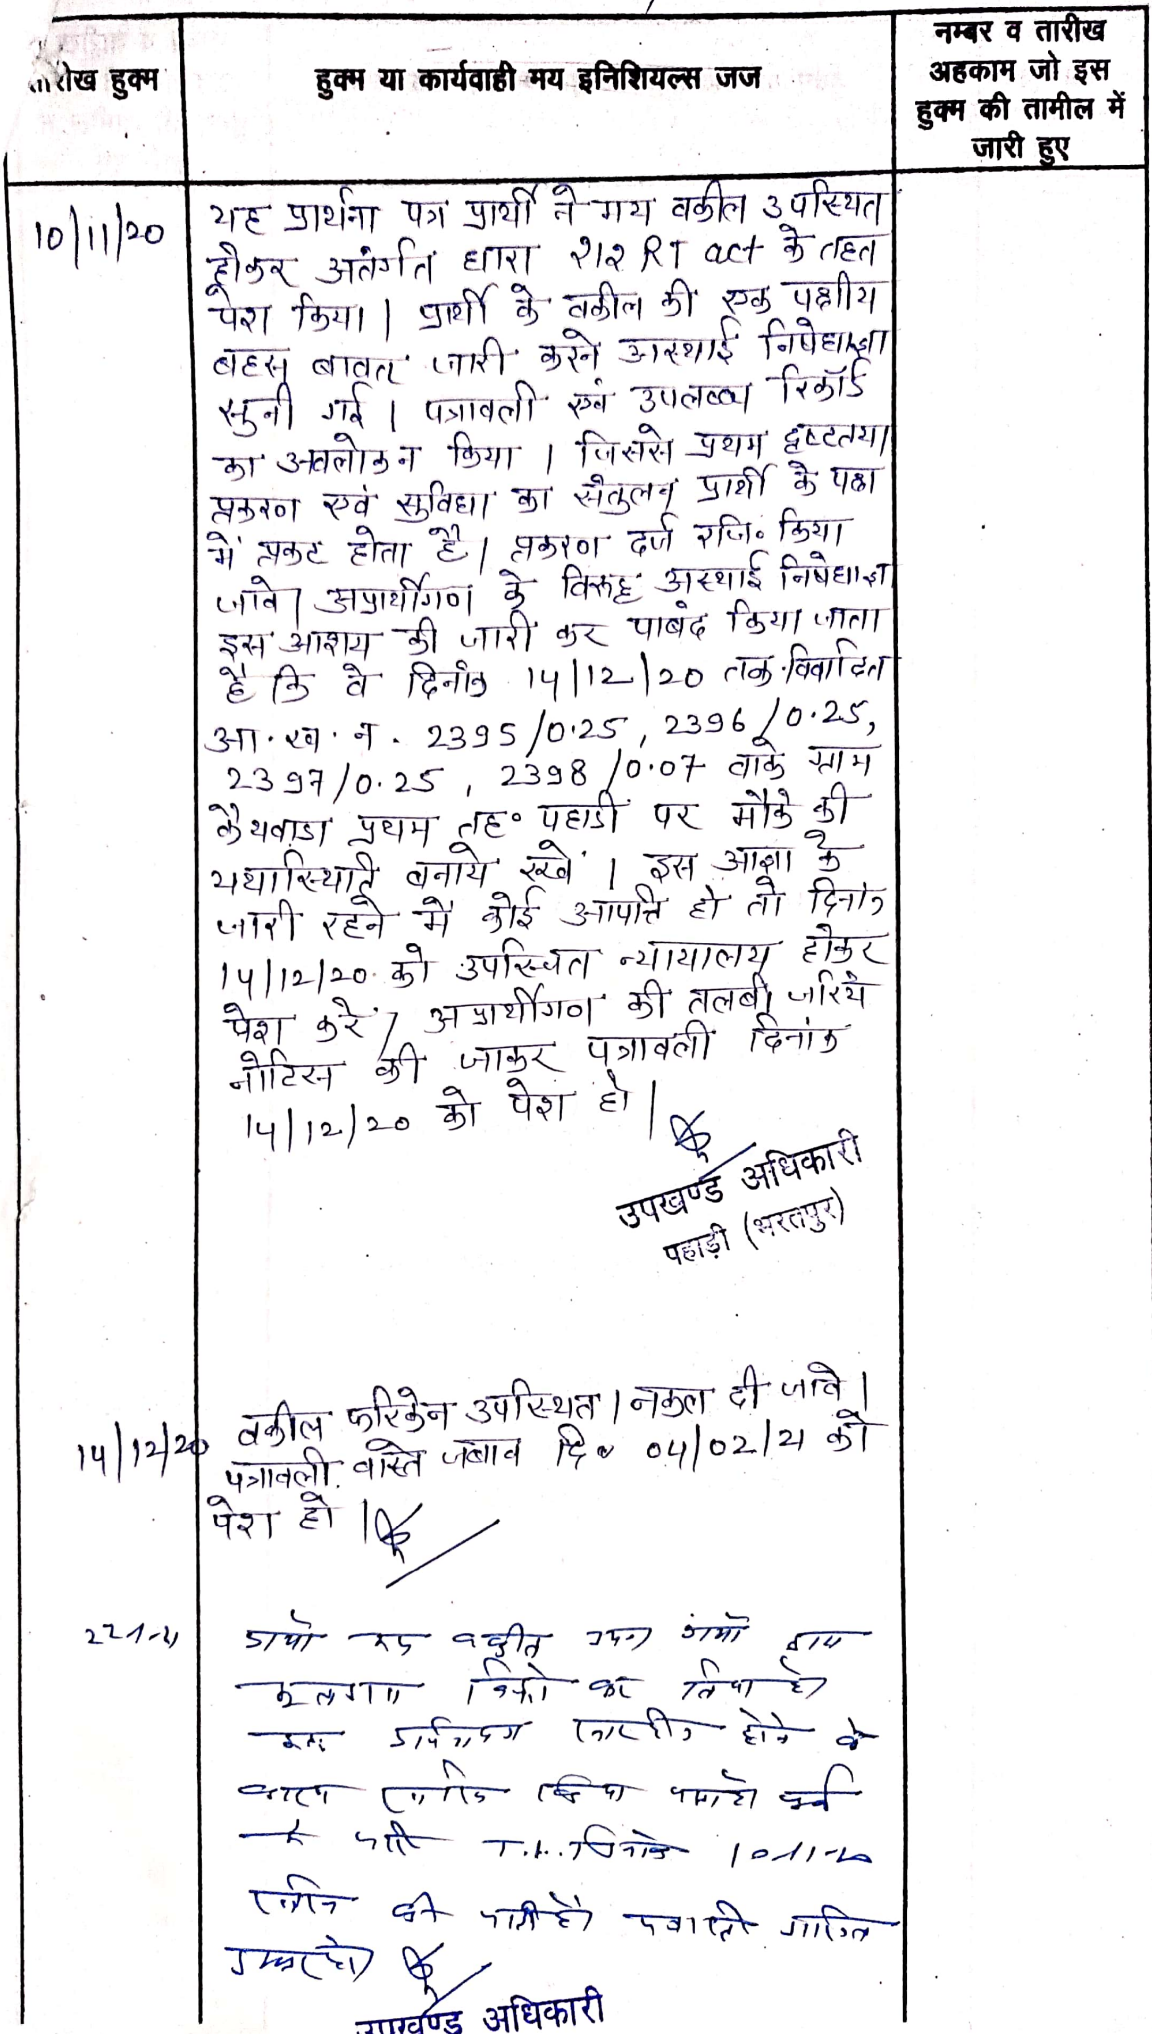 तारीख हुक्म
हुक्म या कार्यवाही मय इनिशियल्स जज
नम्बर व तारीख
अहकाम जो इस
हुक्म की तामील में
जारी हुए
10/11/20
यह प्रार्थना पत्र प्रार्थी ने मय वकील उपस्थित
होकर अतंर्गत धारा 212 RT act के तहत
पेश किया। प्रार्थी के वकील की एक पक्षीय
बहस बावत जारी करने अस्थाई निषेधाज्ञा
सुनी गई। पत्रावली एवं उपलब्ध रिकॉर्ड
का अवलोकन किया। जिससे प्रथम दृष्टतया
प्रकरण एवं सुविधा का संतुलन प्रार्थी के पक्ष
में प्रकट होता है। प्रकरण दर्ज रजि॰ किया
जावे। अप्रार्थीगण के विरूद्द अस्थाई निषेधाज्ञा
इस आशय की जारी कर पाबंद किया जाता
है कि वे दिनांक 14/12/20 तक विवादित
आ. ख. न. 2395/0.25, 2396/0.25,
2397/0.25, 2398/0.07 वाके ग्राम
कैथवाडा प्रथम तह॰ पहाडी पर मौके की
यथास्थिति बनाये रखें। इस आज्ञा के
जारी रहने में कोई आपत्ति हो तो दिनांक
14/12/20 को उपस्थित न्यायालय होकर
पेश करें। अप्रार्थीगण की तलबी जरिये
नोटिस की जाकर पत्रावली दिनांक
14/12/20 को पेश हो।
उपखण्ड अधिकारी
पहाड़ी (भरतपुर)
14/12/20
वकील फरिकेन उपस्थित। नकल दी जावे।
पत्रावली वास्ते जबाव दि॰ 04/02/21 को
पेश हो।
22-1-21
कर लिया है
होने के
कारण किया जाता है पूर्व
में जारी T.I. दिनांक 10-11-20
की जाती है
उपखण्ड अधिकारी